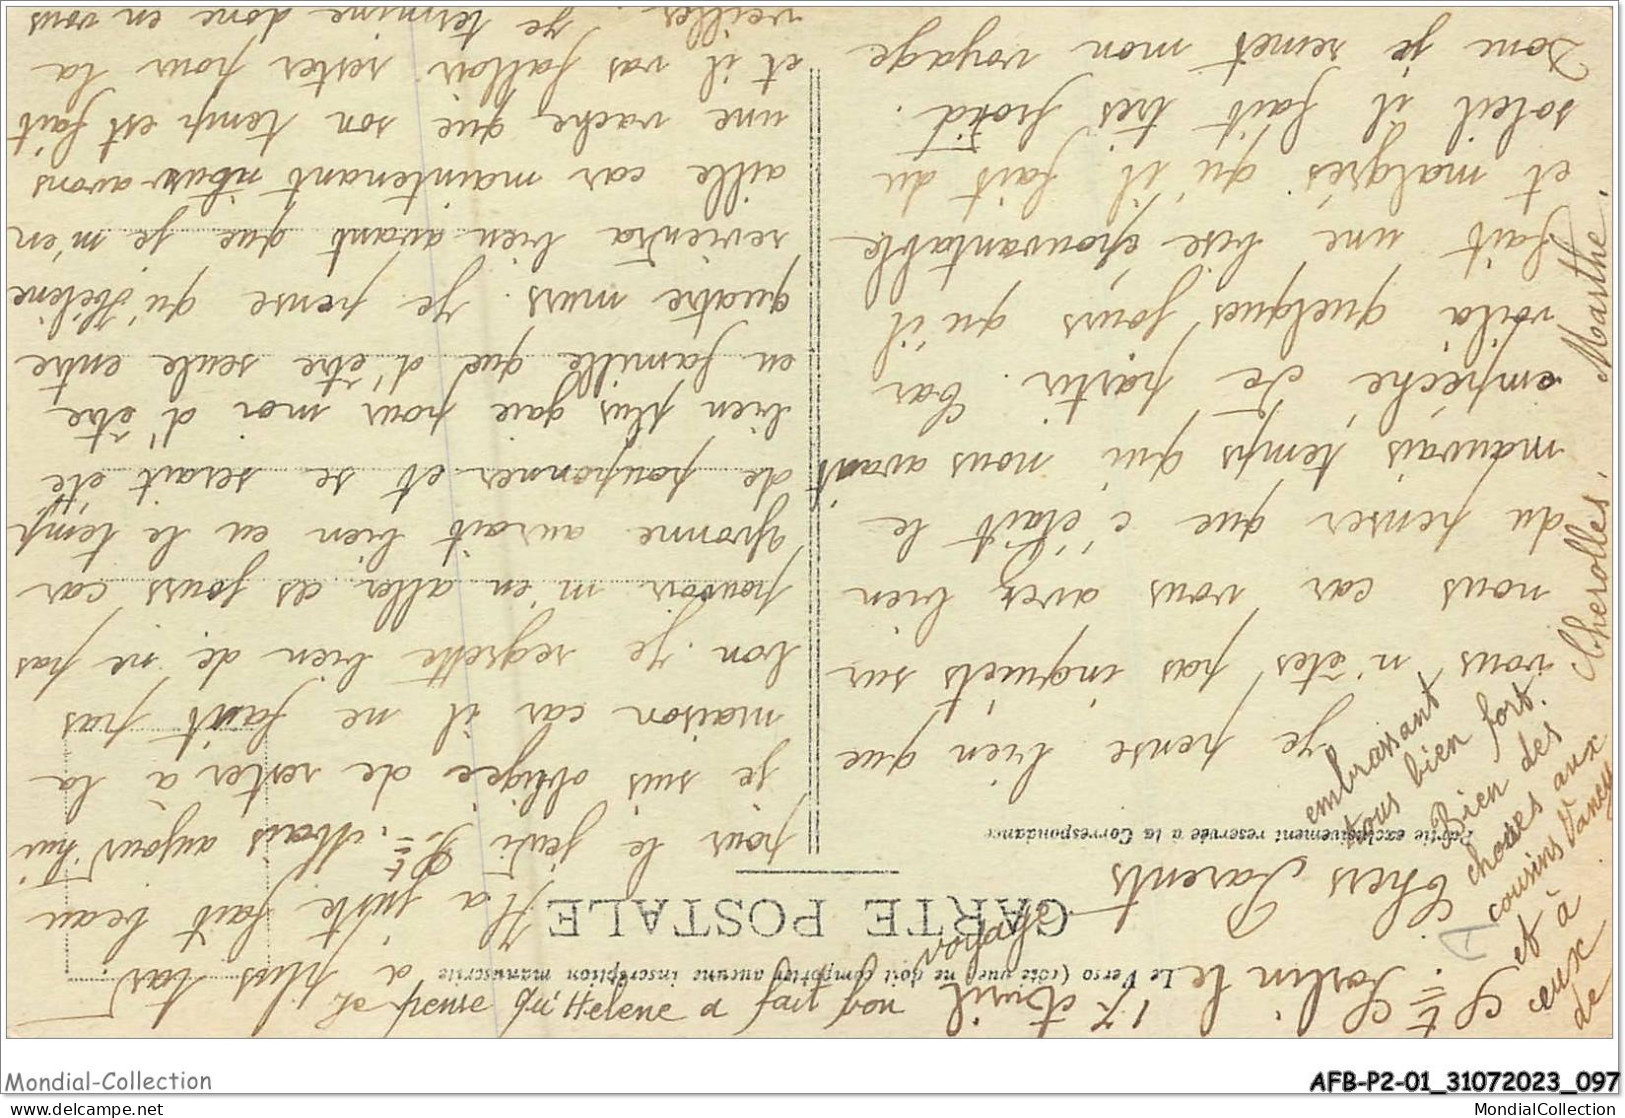 St Sorlin le 17 Avril
Le Verso (côté vue) ne doit comporter aucune inscription manuscrite
CARTE POSTALE
Chers Parents
Partie exclusivement reservée a la Correspondance
Je pense bien que
vous n'êtes pas inquiets sur
nous car vous avez bien
du penser que c'était le
mauvais temps qui nous avait
empéché de partir. Car
voilà quelques jours qu'il
fait une bise épouvantable
et malgrés qu'il fait du
soleil il fait très froid.
Donc je remet mon voyage
à plus tard.
Il a juste fait beau
pour le jeudi St. Mais aujourd'hui
je suis obligée de rester à la
maison car il ne fait pas
bon. Je regrette bien de ne pas
pouvoir m'en aller ces jours car
Yvonne aurait bien eu le temp
de pouponner et se serait été
bien plus gaie pour moi d'être
en famille que d'être seule entre
quatre murs. Je pense qu'Hélène
reviendra bien avant que je m'en
aille car maintenant nous avons
une vache que son temp est fait
et il vas falloir rester pour la
veiller. Je termine donc en vous
embrassant
tous bien fort.
Bien des
choses aux
cousins Vancy
et à
ceux
de
Cherolles. Marthe.
Je pense qu'Hélène a fait bon
voyage
Mondial-Collection
AFB-P2-01_31072023_097
www.delcampe.net
MondialCollection